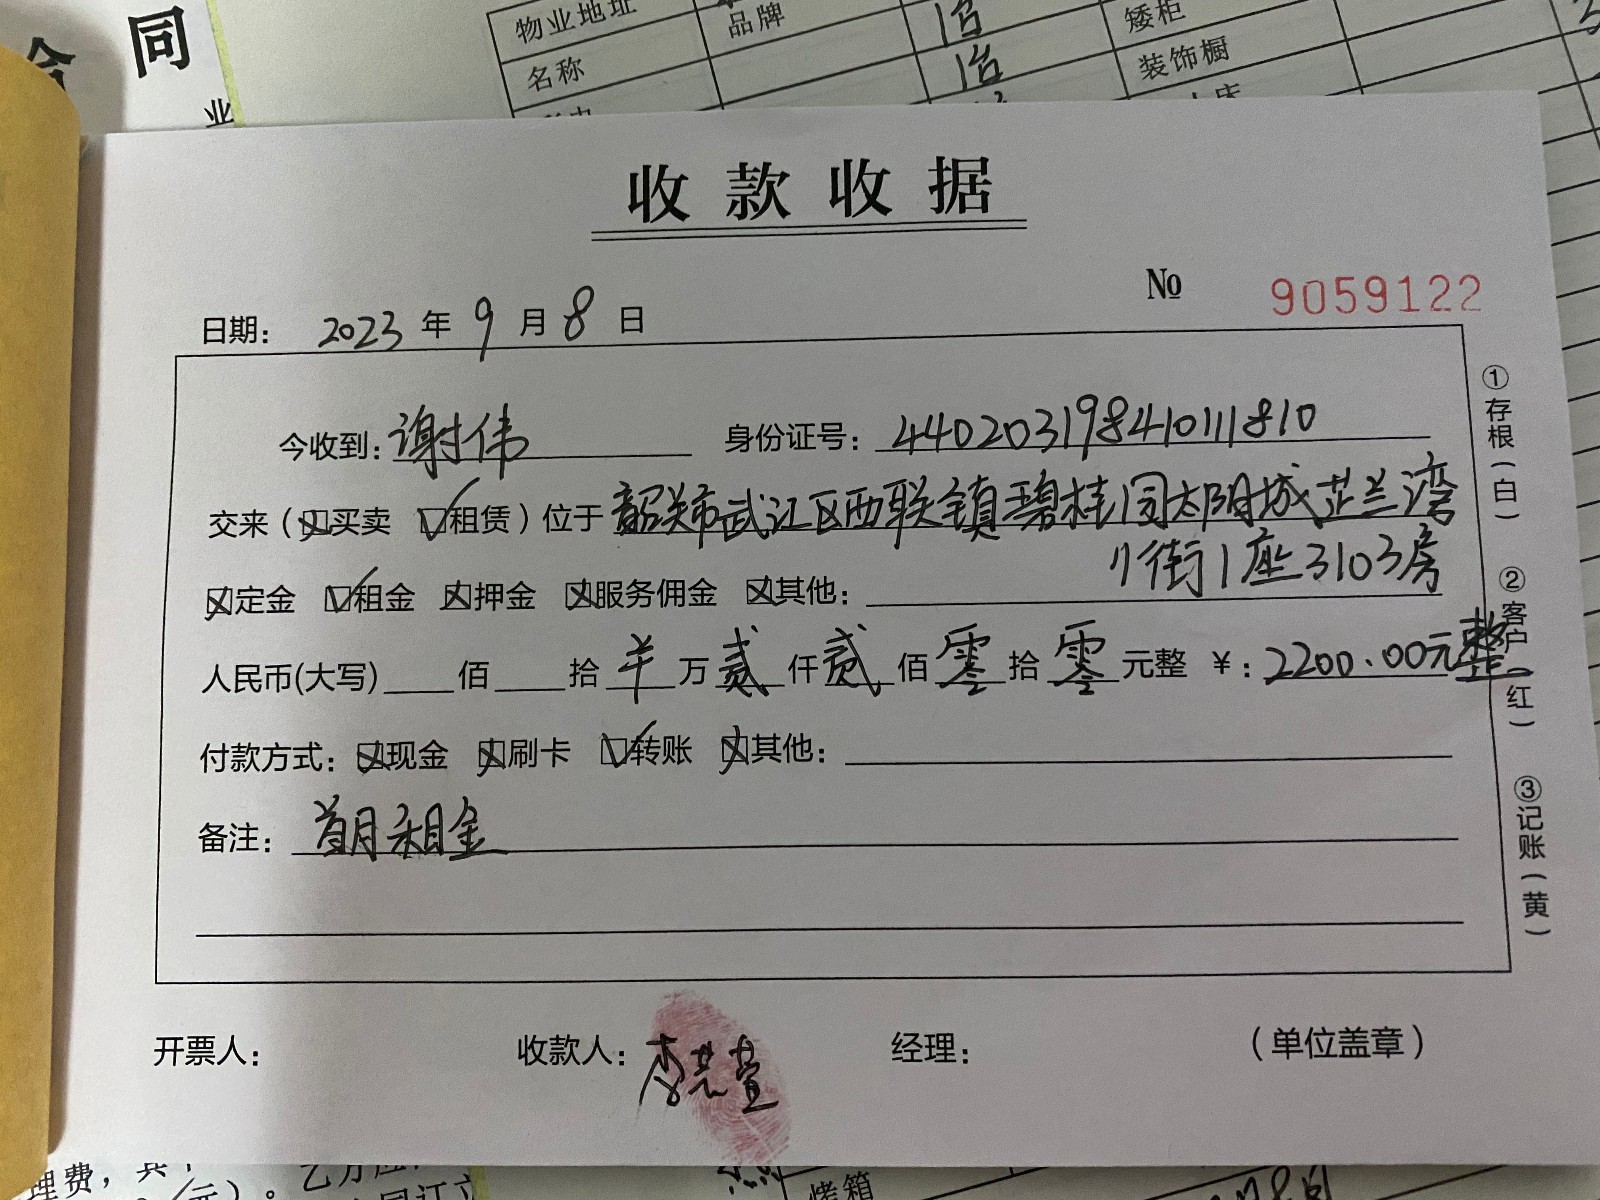 同
业
物业地址
品牌
矮柜
名称
装饰橱
收款收据
№ 9059122
日期： 2023 年 9 月 8 日
今收到：谢伟 身份证号：440203198410111810
交来（☒买卖 ☑租赁）位于韶关市武江区西联镇碧桂园太阳城芷兰湾
街1座3103房
☒定金 ☑租金 ☒押金 ☒服务佣金 ☒其他：
人民币(大写)____佰____拾 万贰仟贰佰零拾零元整 ￥：2200.00元整
付款方式：☒现金 ☒刷卡 ☑转账 ☒其他：
备注：首月租金
开票人： 收款人：李 萱 经理： （单位盖章）
①存根（白）
②客户（红）
③记账（黄）
理费，其
元）。乙方应
烤箱